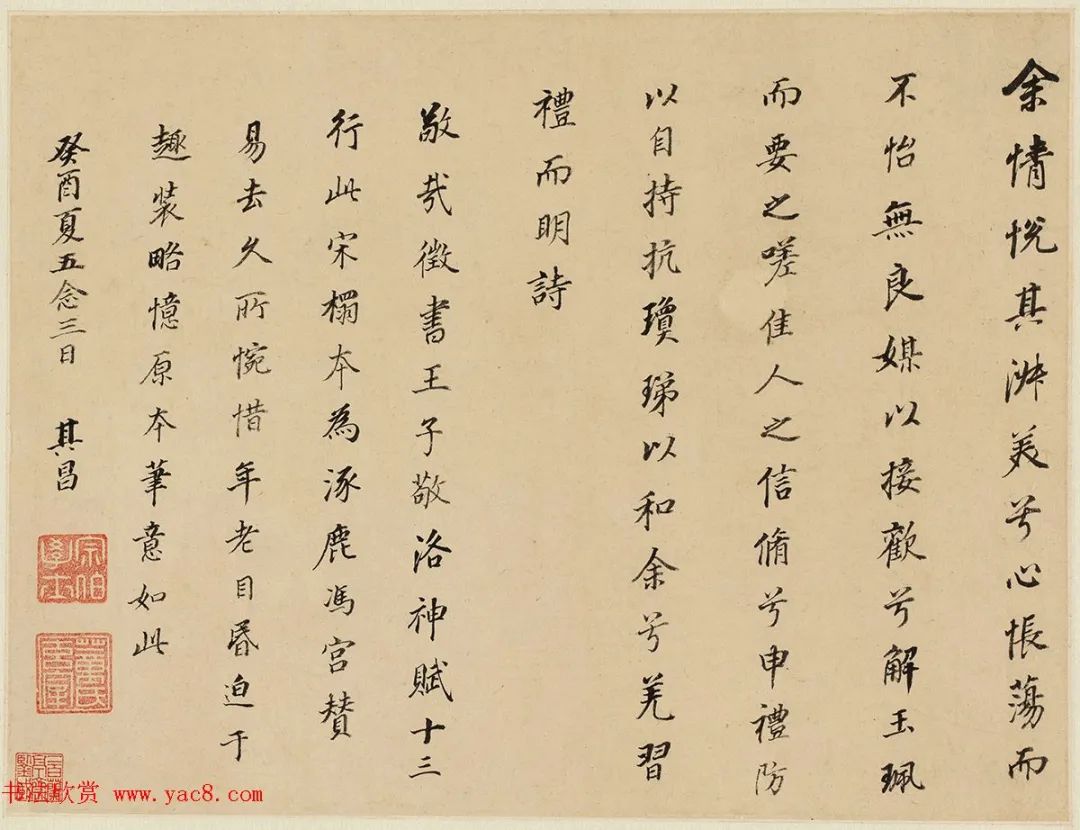 余情悅其淑美兮心悵蕩而
不怡無良媒以接歡兮解玉珮
而要之嗟佳人之信脩兮申禮防
以自持抗瓊珶以和余兮羌習
禮而明詩
敬哉徵書王子敬洛神賦十三
行此宋榻本為涿鹿馮宮贊
易去久所惋惜年老目昬迫于
趣装略憶原本筆意如此
癸酉夏五念三日 其昌
宗伯學士
董氏玄宰
书法欣赏 www.yac8.com